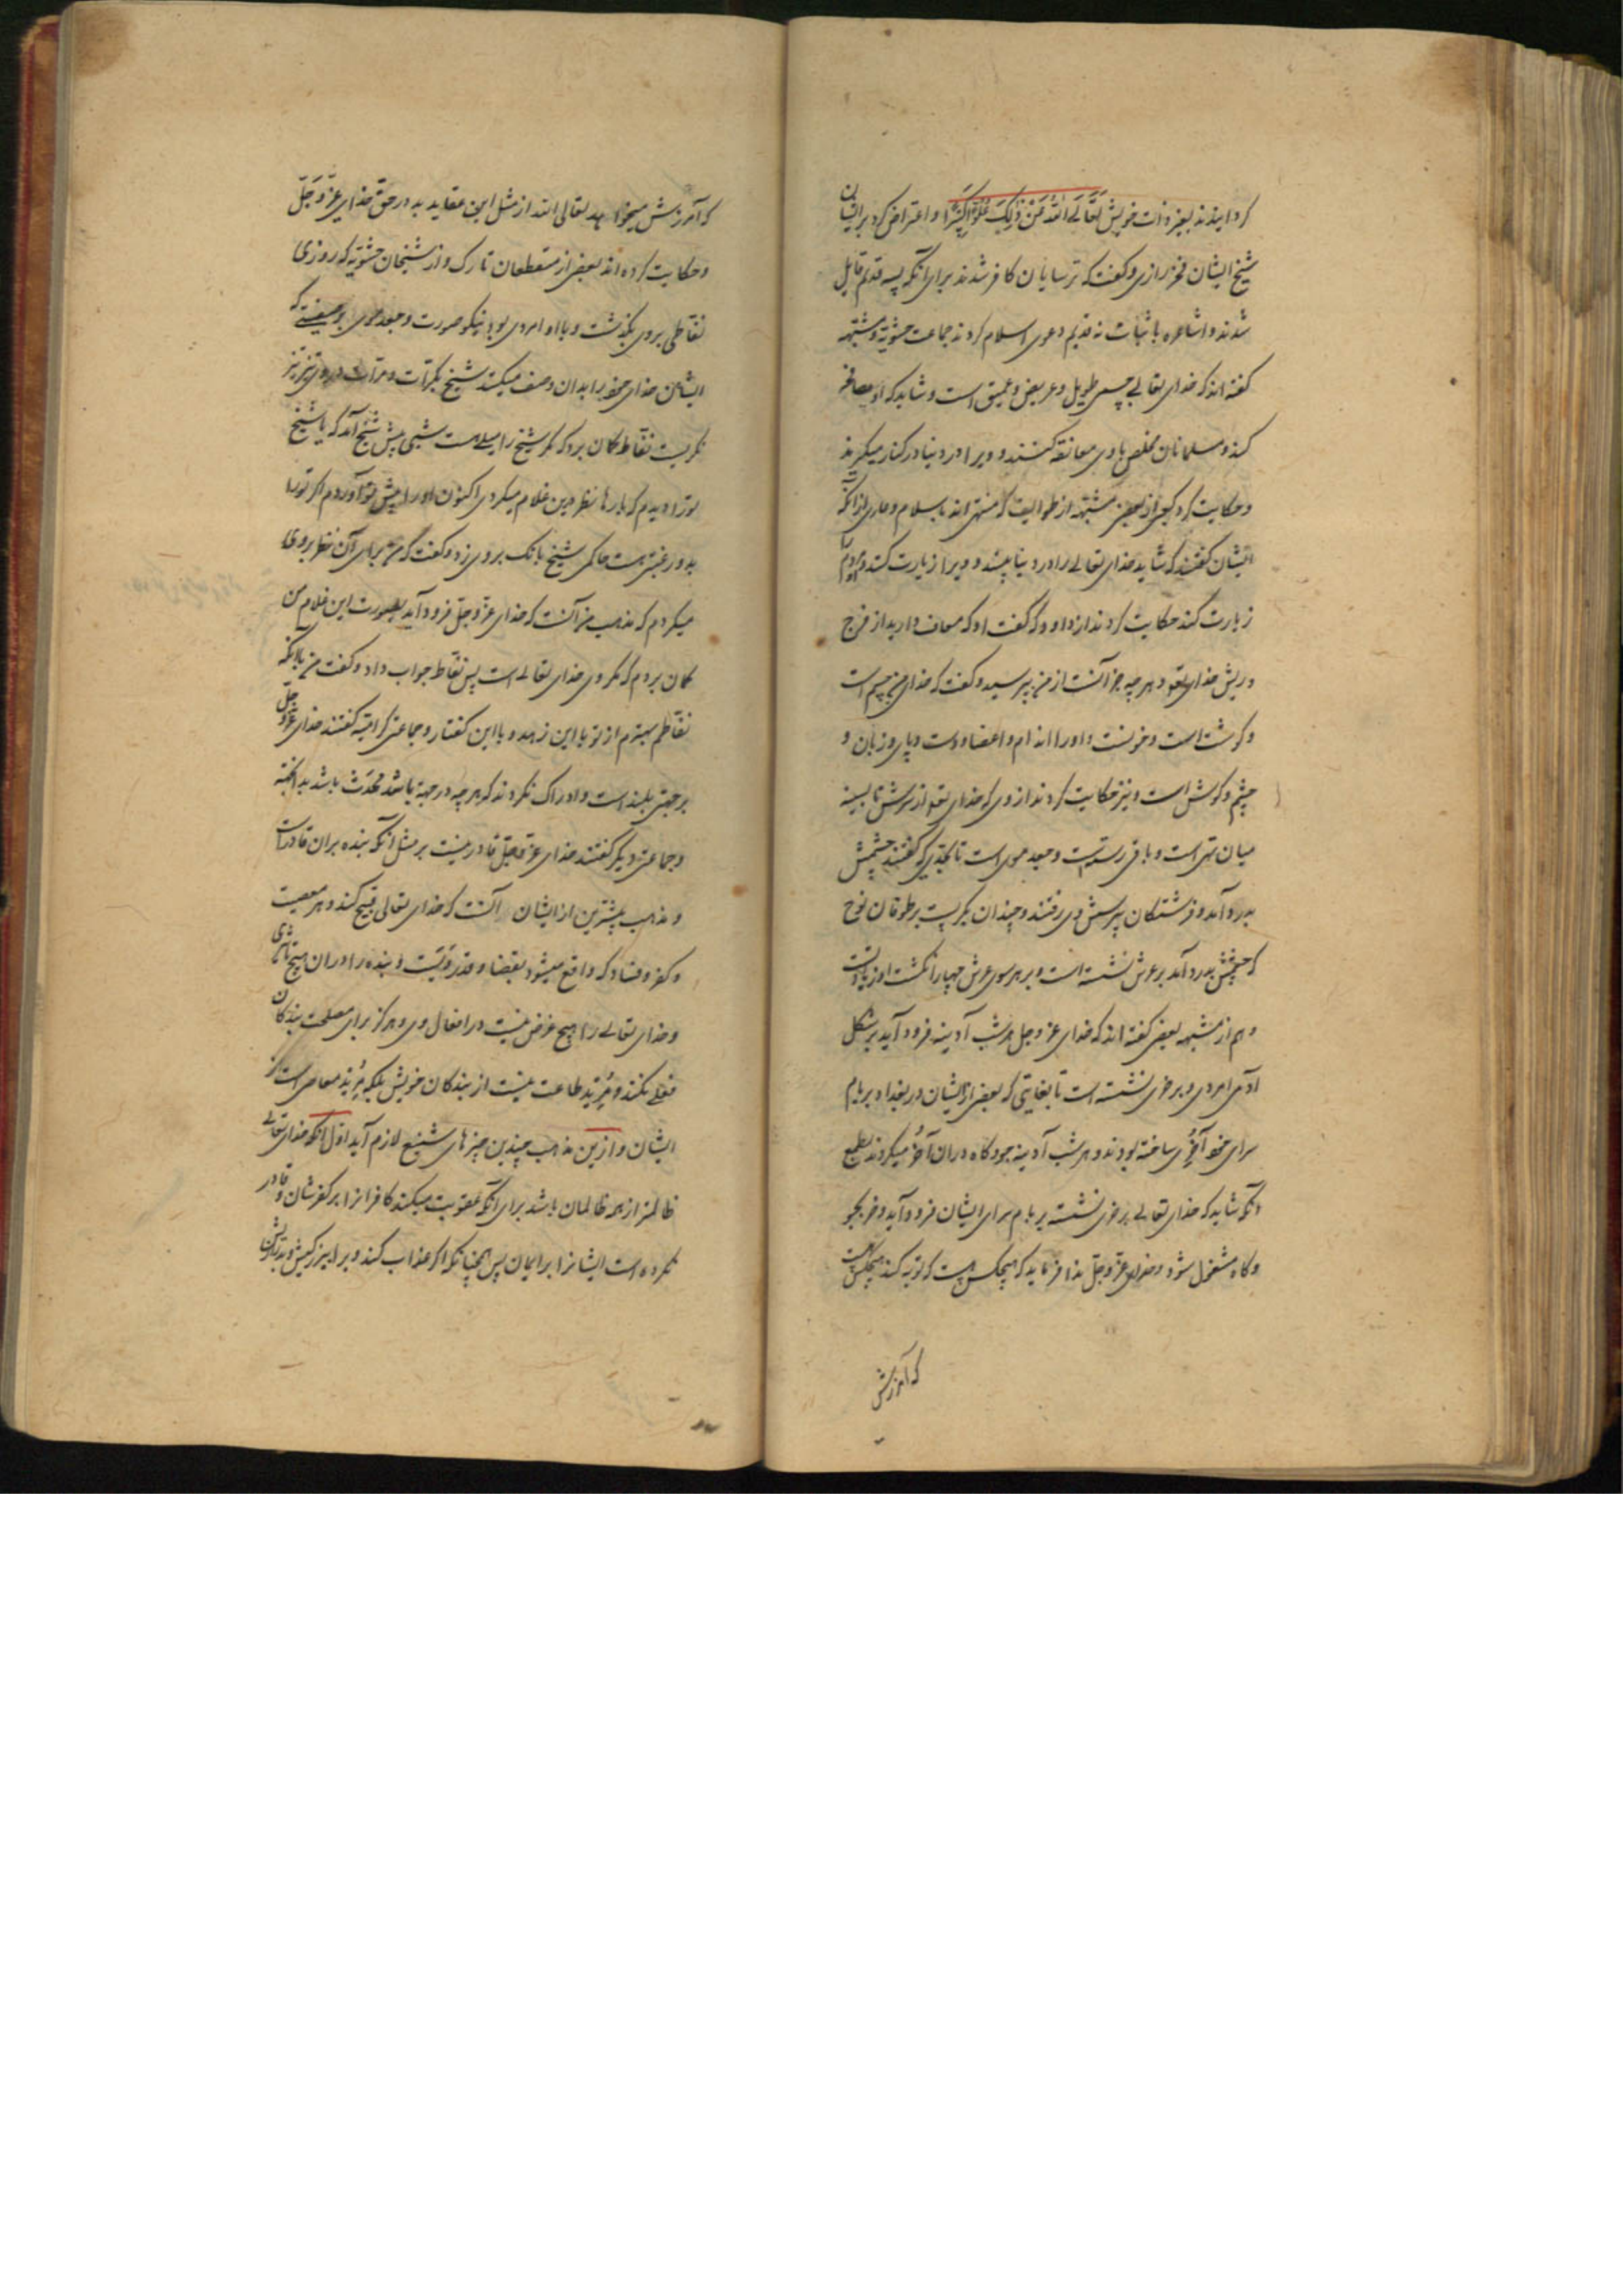 کردانیدند بغیر ذات خویش تَعَالَی اللهُ عَنْ ذٰلِکَ عُلُوًّا کَبِیْرًا و اعتراض کرد برایشان
شیخ ایشان فخر رازی و کفت که ترسایان کافر شدند برای آنکه بسه قدیم قایل
شدند و اشاعره باثبات نه قدیم دعوی اسلام کردند جماعت حشویّه و مشبّهه
کفته اند که خدای تعالی جسمی طویل و عریض و عمیق است و شاید که او مصافحه
کند و مسلمانان مخلص با وی معانقه کنند و ویرا در دنیا در کنار میکیرند
و حکایت کرد کعبی از بعضی مشبّهه از طوایف که منتهی اند باسلام و عاری از آنکه
ایشان کفتند که شاید خدای تعالی را در دنیا بینند و ویرا زیارت کنند و او مردم
زیارت کند حکایت کردند از داود که کفت او که معاف دارید از فرج
و ریش خدای تعو و هر چه جز آنست از من بپرسید و کفت که خدای من جسم است
و کوشت است و خونست و او را اندام و اعضا و دست و پای و زبان و
چشم و کوش است و نیز حکایت کردند از وی که خدای تعو از سرش تا بسینه
میان تهی است و باقی رستست و جعد موی است تا بحدّی که کفتند چشمش
بدرد آمد و فرشتکان بپرسش وی رفتند و چندان بکریست بر طوفان نوح
که چشمش بدرد آمد بر عرش نشسته است و بر هر سوی عرش چهار انکشت از و زیادتست
و هم از مشبّهه بعضی کفته اند که خدای عزوجل هر شب آدینه فرود آید بر شکل
آدمی امردی و بر خری نشسته است تا بغایتی که بعضی از ایشان در بغداد بر بام
سرای خود آخُری ساخته بودند و هر شب آدینه جو و کاه در ان آخُر میکردند بطمع
آنکه شاید که خدای تعالی بر خری نشسته بر بام سرای ایشان فرود آید و خر بجو
و کاه مشغول شود و خدای عزّ و جلّ ندا فرماید که هیچکس هست که توبه کند هیچکس هست
که آمرزش
که آمرزش میخواهد تعالی الله از مثل این عقاید بد در حق خدای عَزَّ وَجَلَّ
و حکایت کرده اند بعضی از منقطعان تارک و از شیخان حشویّه که روزی
نفّاطی بر وی بکذشت و با او امردی بود نیکو صورت و جعد موی بر صفتی که
ایشان خدای خود را بدان وصف میکنند شیخ بکرّات و مرّات در وی تیز تیز
نکریست نفّاط کمان برد که مکر شیخ را میلیست شبی پیش شیخ آمد که یا شیخ
تو را دیدم که بارها نظر درین غلام میکردی اکنون او را پیش تو آوردم اکر تو را
بدو رغبتی هست حاکمی شیخ بانک بر وی زد و کفت که من برای آن نظر بر وی
میکردم که مذهب من آنست که خدای عزّ وجلّ فرود آید بصورت این غلام من
کمان بردم که مکر وی خدای تعالی است پس نفّاط جواب داد و کفت من باآنکه
نفّاطم بهترم از تو با این زهد و با این کفتار و جماعتی کرامیّه کفتند خدای عزّوجلّ
بر جهتی بلند است و ادراک نکردند که هر چه در جهت باشد مُحدَث باشد بدانجهة
و جماعتی دیکر کفتند خدای عزّ وجلّ قادر نیست بر مثل آنکه بنده بران قادراست
و مذهب بیشترین از ایشان آنست که خدای تعالی قبیح کند و هر معصیت
و کفر و فساد که واقع میشود بقضا و قدر ویَست و بنده را در ان هیچ تاثیری
و خدای تعالی را هیچ غرض نیست در افعال وی و هرکز برای مصلحت بندکان
فعلی نکند و مُرِید طاعت نیست از بندکان خویش بلکه مُرِید معاصی است از
ایشان و ازین مذهب چندین چیزهای شنیع لازم آید اوّل آنکه خدای تعالی
ظالمتر از همه ظالمان باشد برای آنکه عقوبت میکند کافرانرا بر کفرشان و قادر
نکرده است ایشانرا بر ایمان پس همچنانکه اکر عذاب کند ویرا